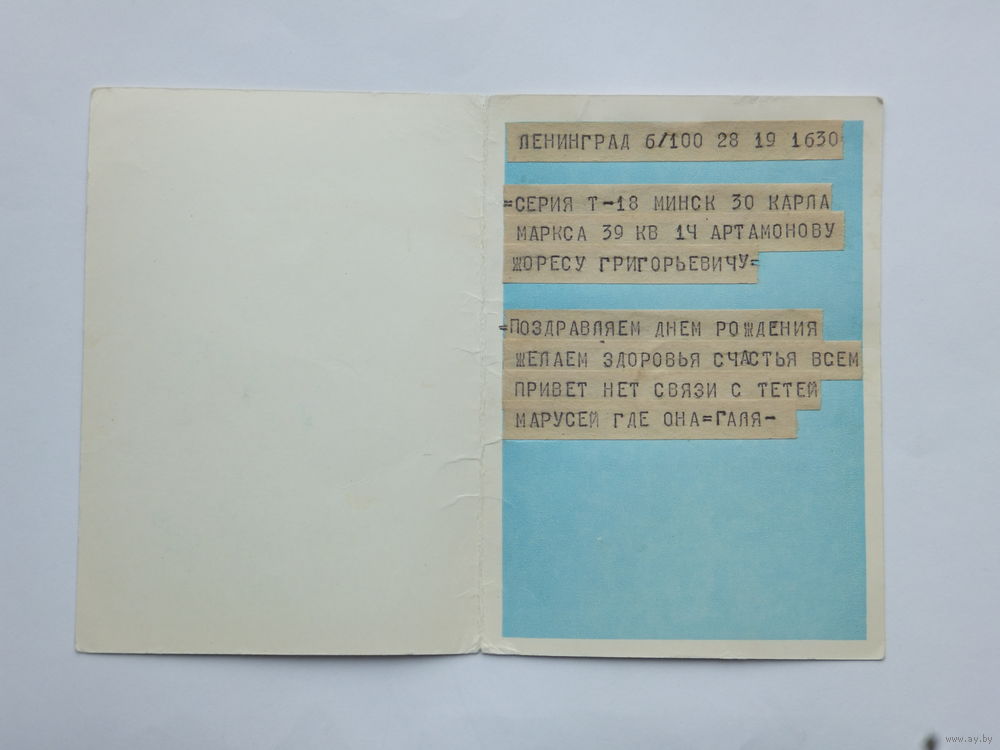 ЛЕНИНГРАД 6/100 28 19 1630
=СЕРИЯ Т-18 МИНСК 30 КАРЛА
МАРКСА 39 КВ 14 АРТАМОНОВУ
ЖОРЕСУ ГРИГОРЬЕВИЧУ=
=ПОЗДРАВЛЯЕМ ДНЕМ РОЖДЕНИЯ
ЖЕЛАЕМ ЗДОРОВЬЯ СЧАСТЬЯ ВСЕМ
ПРИВЕТ НЕТ СВЯЗИ С ТЕТЕЙ
МАРУСЕЙ ГДЕ ОНА=ГАЛЯ-
www.ay.by